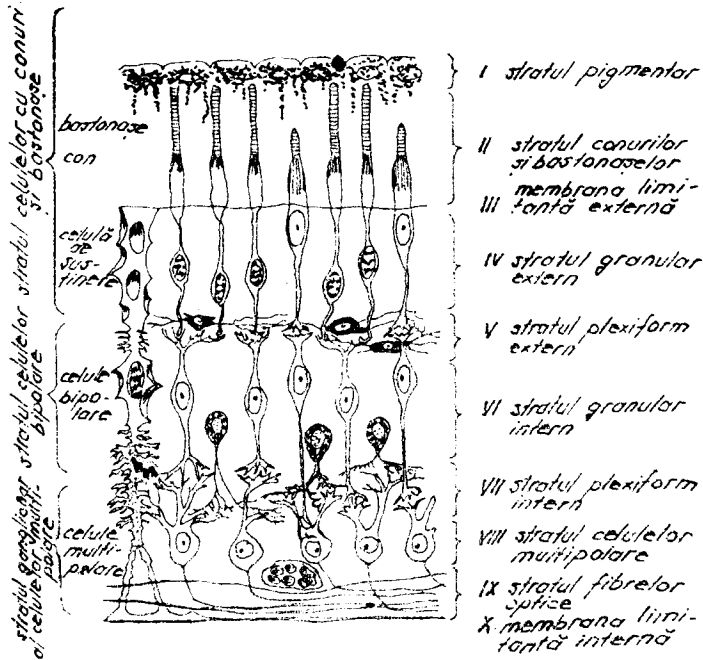 stratul celulelor cu conuri
și bastonașe
stratul celulelor
bipolare
stratul ganglionar
al celulelor multi-
polare
bastonașe
con
celulă
de
sus-
ținere
celule
bipo-
lare
celule
multi-
polare
I stratul pigmentar
II stratul conurilor
și bastonașelor
III membrana limi-
tantă externă
IV stratul granular
extern
V stratul plexiform
extern
VI stratul granular
intern
VII stratul plexiform
intern
VIII stratul celulelor
multipolare
IX stratul fibrelor
optice
X membrana limi-
tantă internă